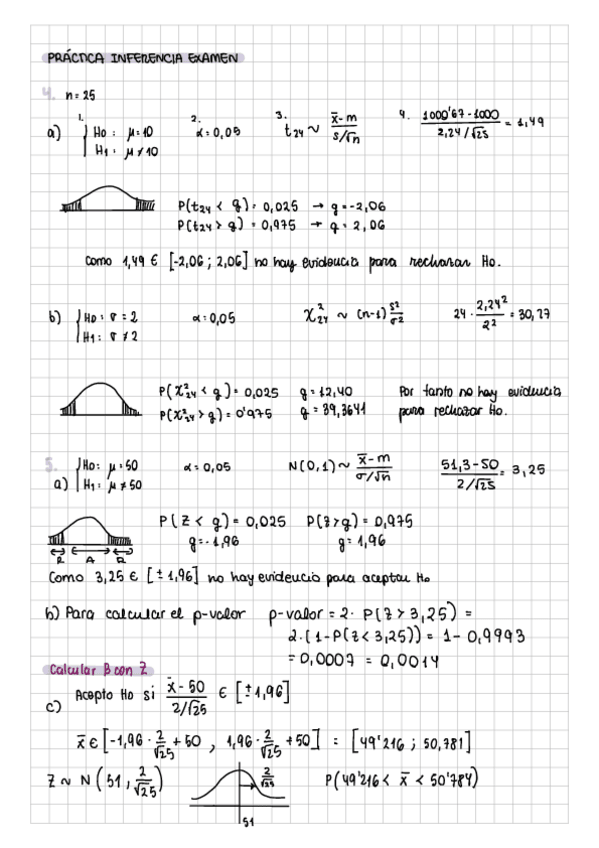 PRÁCTICA INFERENCIA EXAMEN
4. n=25
a) 1. { H0: μ=10 2. α=0,05 3. t24 ~ (x̄-m)/(s/√n) 4. (1000'67-1000)/(2,24/√25) = 1,49
H1: μ≠10
P(t24 < q) = 0,025 → q=-2,06
P(t24 > q) = 0,975 → q= 2,06
Como 1,49 ∈ [-2,06 ; 2,06] no hay evidencia para rechazar H0.
b) { H0: σ = 2 α=0,05 X²24 ~ (n-1) s²/σ² 24 · 2,24²/2² = 30,77
H1: σ ≠ 2
P(X²24 < q) = 0,025 q=12,40 Por tanto no hay evidencia
P(X²24 > q) = 0'975 q= 39,3641 para rechazar H0.
5.
a) { H0: μ=50 α=0,05 N(0,1) ~ (x̄-m)/(σ/√n) (51,3-50)/(2/√25) = 3,25
H1: μ≠50
P(Z < q) = 0,025 P(Z>q) = 0,975
q=-1,96 q= 1,96
R A R
Como 3,25 ∈ [±1,96] no hay evidencia para aceptar H0
b) Para calcular el p-valor p-valor = 2· P(Z > 3,25) =
2·(1-P(Z < 3,25)) = 1- 0,9993
= 0,0007 = 0,0014
Calcular β con Z
c) Acepto H0 si (x̄-50)/(2/√25) ∈ [±1,96]
x̄ ∈ [-1,96 · 2/√25 +50 , 1,96 · 2/√25 +50] = [49'216 ; 50,781]
Z ~ N(51, 2/√25) 2/√25 P(49'216 < x̄ < 50'784)
51